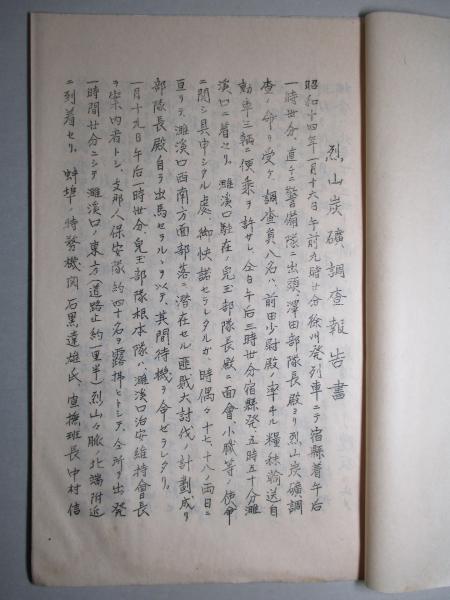 烈山炭礦調查報告書
昭和十四年一月十六日午前九時廿分徐州発列車ニテ宿縣着午后
一時廿分、直チニ警備隊ニ出頭、澤田部隊長殿ヨリ烈山炭礦調
查ノ命ヲ受ケ、調查員八名ハ、前田少尉殿ノ率ヰル糧秣輸送自
動車三輛ニ便乘ヲ許サレ、仝日午后三時廿分宿縣発、五時五十分濉
溪口ニ着セリ。濉溪口駐在ノ兒玉部隊長殿ニ面會小職等ノ使命
ニ関シ具申シタル處、御快諾セラレタルガ、時偶々十七、十八ノ両日ニ
亘リテ、濉溪口西南方面部落ニ潜在セル匪賊大討伐ノ計劃成リ
部隊長殿自ラ出馬セラルヽヲ以テ、其間待機ヲ命ゼラレタリ。
一月十九日午后一時廿分、兒玉部隊根本隊ハ、濉溪口治安維持會長
ヲ案内者トシ、支那人保安隊約四十名ヲ露拂ヒトシテ、仝所ヲ出発
一時間廿分ニシテ濉溪口ノ東方(道路上約一里半)烈山々脈ノ北端附近
ニ到着セリ、蚌埠ノ特務機関、石黒達雄氏、宣撫班長中村信